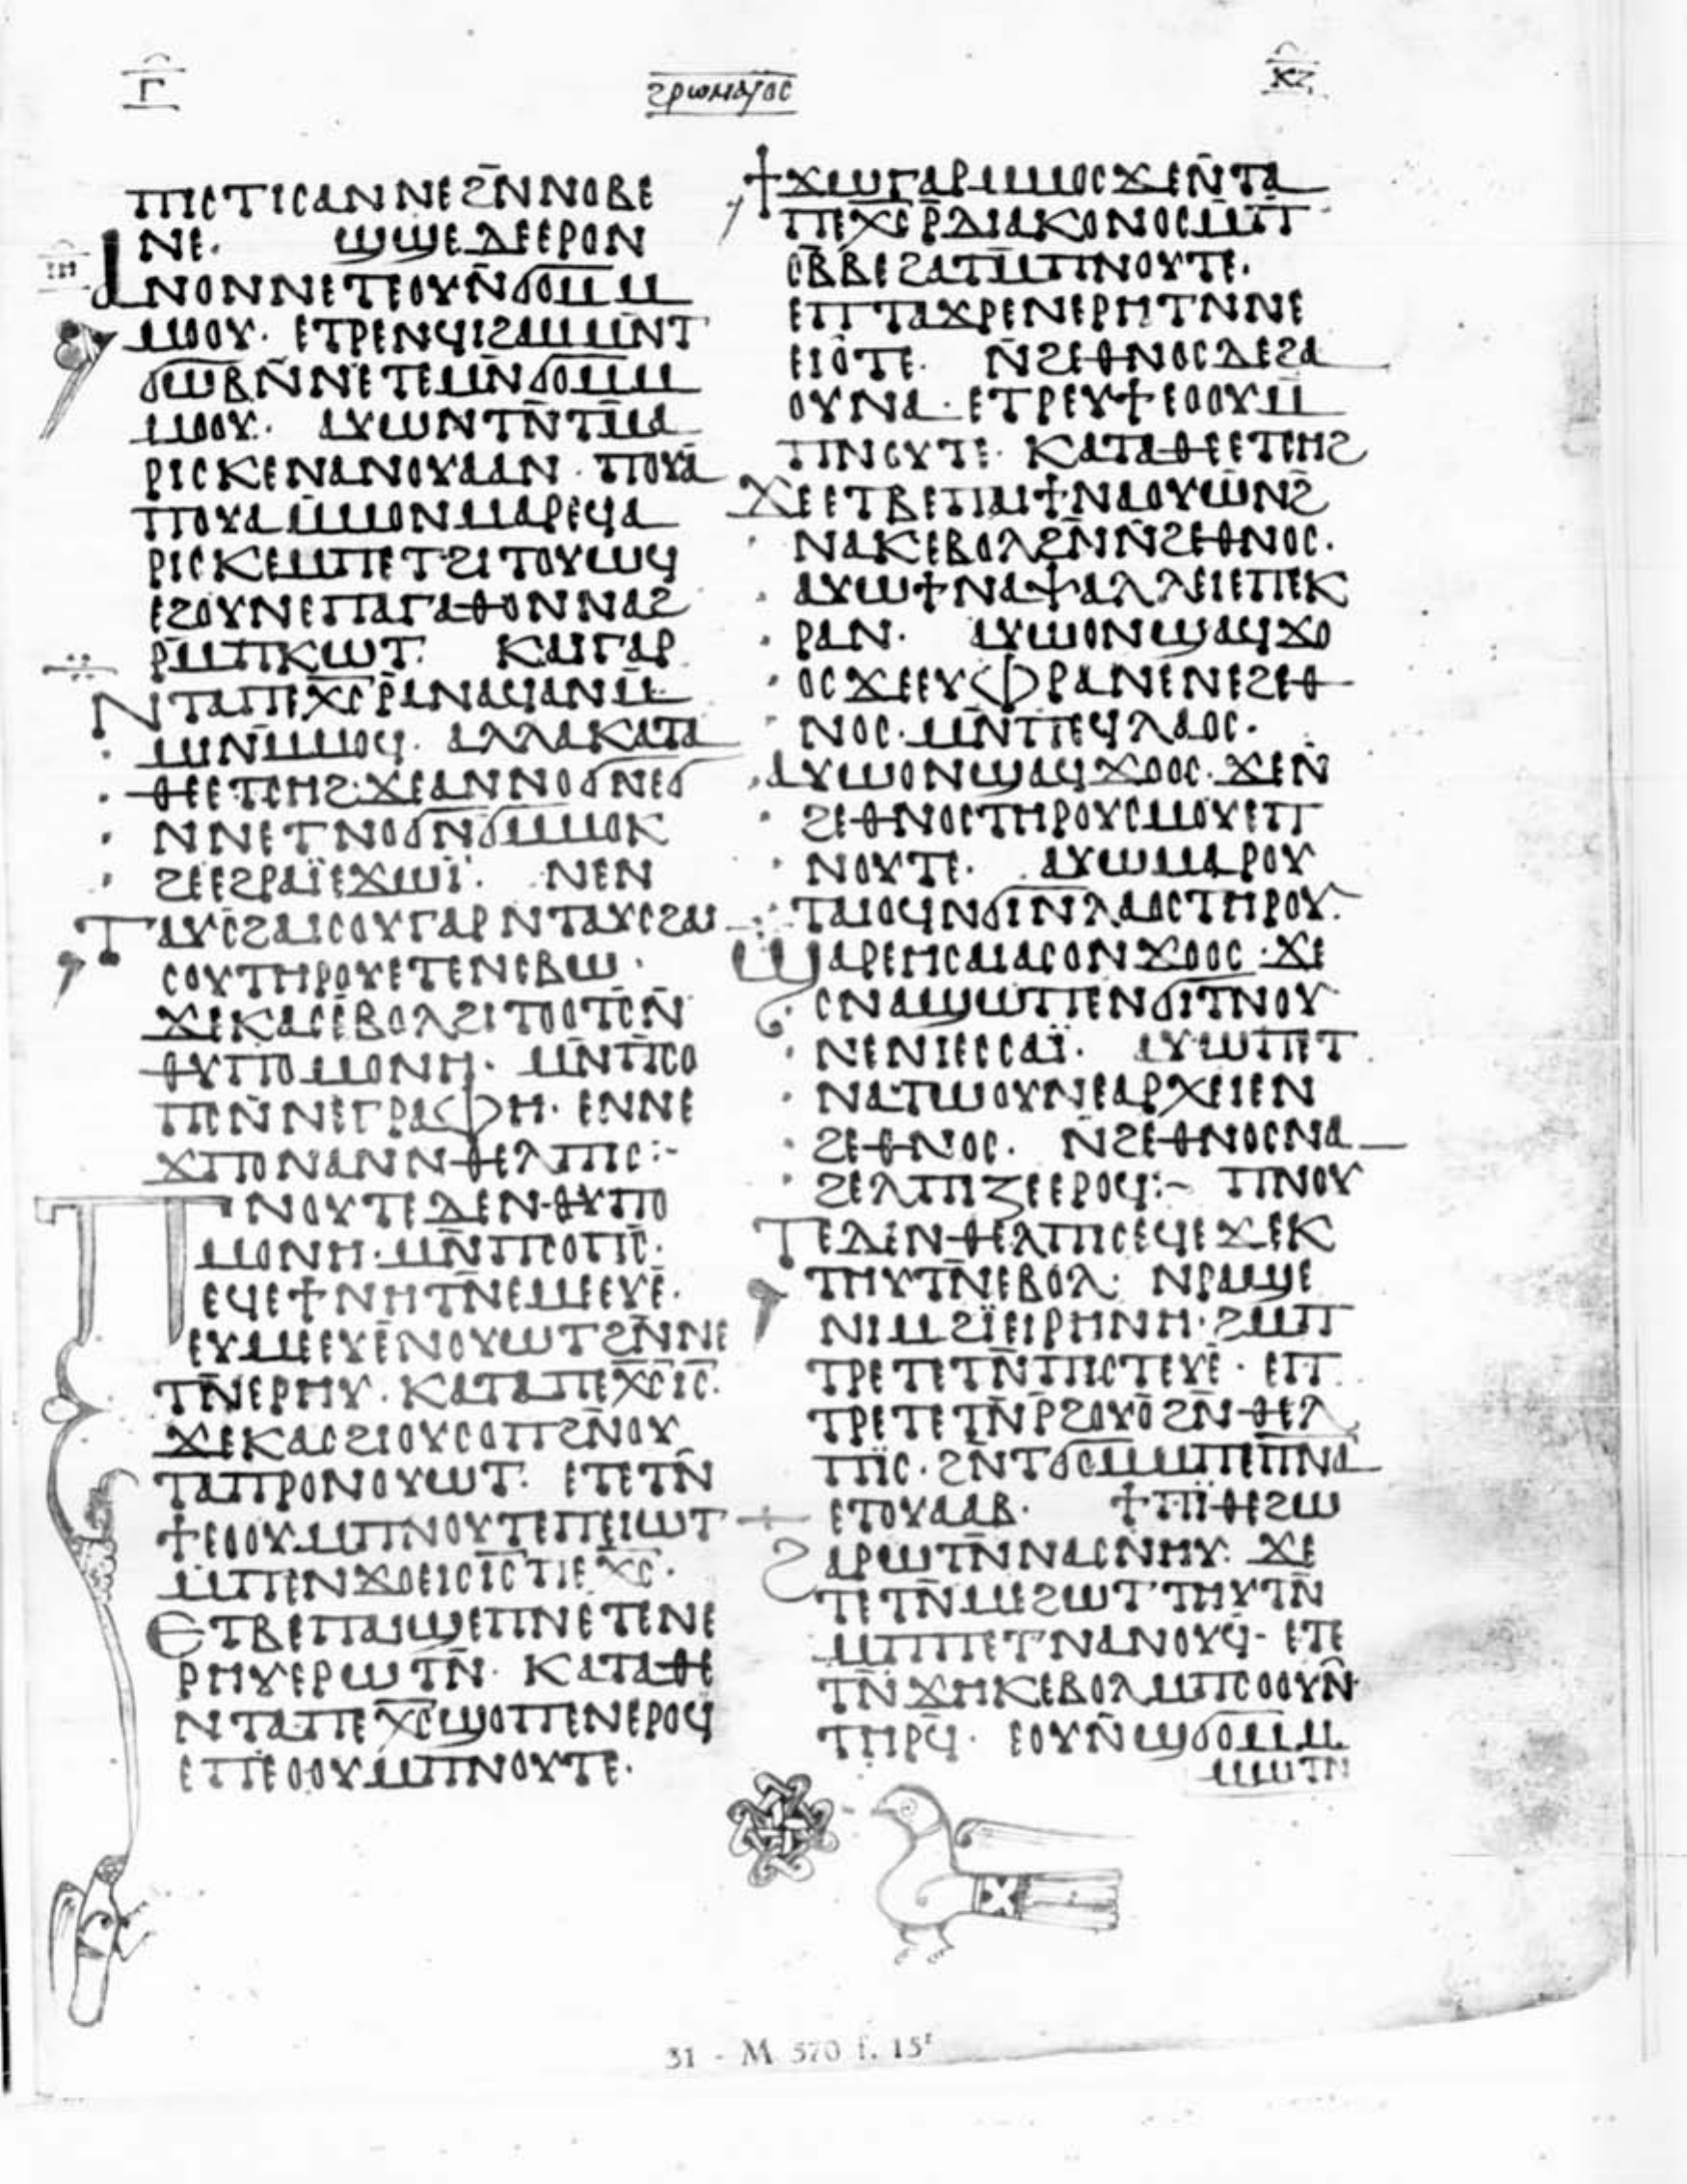 ⲅ̅ ϩⲣⲱⲙⲁⲓⲟⲥ ⲕⲍ̅
ⲡⲓⲥⲧⲓⲥ ⲁⲛ ⲛⲉ ϩⲛ̅ⲛⲟⲃⲉ
ⲛⲉ· ϣϣⲉ ⲇⲉ ⲉⲣⲟⲛ
ⲁⲛⲟⲛ ⲛⲉⲧⲉⲟⲩⲛ̅ϭⲟⲙ ⲙ
ⲙⲟⲟⲩ· ⲉⲧⲣⲉⲛϥⲓ ϩⲁ ⲙⲙⲛ̅ⲧ
ϭⲱⲃ ⲛ̅ⲛⲉⲧⲉⲙⲛ̅ϭⲟⲙ ⲙ
ⲙⲟⲟⲩ· ⲁⲩⲱ ⲛⲧⲛ̅ⲧⲙ̅ⲁ
ⲣⲓⲥⲕⲉ ⲛⲁⲛ ⲟⲩⲁⲁⲛ· ⲡⲟⲩⲁ
ⲡⲟⲩⲁ ⲙ̅ⲙⲟⲛ ⲙⲁⲣⲉϥⲁ
ⲣⲓⲥⲕⲉ ⲙⲡⲉⲧϩⲓⲧⲟⲩⲱϥ
ⲉϩⲟⲩⲛ ⲉⲡⲁⲅⲁⲑⲟⲛ ⲛⲛⲁϩ
ⲣⲙ̅ⲡⲕⲱⲧ· ⲕⲁⲓ ⲅⲁⲣ
ⲛⲧⲁⲡⲉⲭ̅ⲥ̅ ⲣ̅ⲁⲛⲁϥ ⲁⲛ ⲙ̅
ⲙⲓⲛ ⲙ̅ⲙⲟϥ· ⲁⲗⲗⲁ ⲕⲁⲧⲁ
ⲑⲉ ⲉⲧⲥⲏϩ· ϫⲉ ⲁⲛⲛⲟϭⲛⲉϭ
ⲛⲛⲉⲧⲛⲟϭⲛ̅ϭ ⲙⲙⲟⲕ
ϩⲉ ⲉϩⲣⲁⲓ̈ ⲉϫⲱⲓ̈· ⲛⲉⲛ
ⲧⲁⲩⲥϩⲁⲓⲥⲟⲩ ⲅⲁⲣ ⲛⲧⲁⲩⲥϩⲁⲓ
ⲥⲟⲩ ⲧⲏⲣⲟⲩ ⲉⲧⲉⲛⲥⲃⲱ·
ϫⲉⲕⲁⲥ ⲉ̅ⲃⲟⲗ ϩⲓⲧⲟⲟⲧⲥ̅ ⲛ̅
ⲑⲩⲡⲟⲙⲟⲛⲏ· ⲙⲛ̅ⲡⲥⲟ
ⲡⲥ̅ ⲛ̅ⲛⲉⲅⲣⲁⲫⲏ· ⲉⲛⲛⲉ
ϫⲡⲟ ⲛⲁⲛ ⲛⲑⲉⲗⲡⲓⲥ:-
ⲡⲛⲟⲩⲧⲉ ⲇⲉ ⲛⲑⲩⲡⲟ
ⲙⲟⲛⲏ· ⲙⲛ̅ⲡⲥⲟⲡⲥ̅·
ⲉϥⲉϯ ⲛⲏⲧⲛ̅ ⲉⲙⲉⲉⲩⲉ̅·
ⲉⲩⲙⲉⲉⲩⲉ̅ ⲛⲟⲩⲱⲧ ϩⲛ̅ⲛⲉ
ⲧⲛ̅ⲉⲣⲏⲩ· ⲕⲁⲧⲁ ⲡⲉⲭ̅ⲥ̅ ⲓ̅ⲥ̅·
ϫⲉⲕⲁⲥ ϩⲓⲟⲩⲥⲟⲡ ϩⲛ̅ⲟⲩ
ⲧⲁⲡⲣⲟ ⲛⲟⲩⲱⲧ· ⲉⲧⲉⲧⲛ̅
ϯⲉⲟⲟⲩ ⲙⲡⲛⲟⲩⲧⲉ ⲡⲉⲓⲱⲧ
ⲙⲡⲉⲛϫⲟⲉⲓⲥ ⲓ̅ⲥ̅ ⲡⲉⲭ̅ⲥ̅·
ⲉⲧⲃⲉ ⲡⲁⲓ ϣⲉⲡ ⲛⲉⲧⲉⲛⲉ
ⲣⲏⲩ ⲉⲣⲱⲧⲛ̅· ⲕⲁⲧⲁ ⲑⲉ
ⲛⲧⲁⲡⲉⲭ̅ⲥ̅ ϣⲟⲡⲉⲛ ⲉⲣⲟϥ
ⲉⲡⲉⲟⲟⲩ ⲙⲡⲛⲟⲩⲧⲉ·
ϯϫⲱ ⲅⲁⲣ ⲙⲙⲟⲥ ϫⲉ ⲛ̅ⲧⲁ
ⲡⲉⲭ̅ⲥ̅ ⲣ̅ⲇⲓⲁⲕⲟⲛⲟⲥ ⲙⲡ̅
ⲥⲃ̅ⲃⲉ ϩⲁ ⲧⲙⲉ ⲙⲡⲛⲟⲩⲧⲉ·
ⲉⲡⲧⲁϫⲣⲉ ⲛⲉⲣⲏⲧ ⲛⲛⲉ
ⲉⲓⲟⲧⲉ· ⲛ̅ϩⲉⲑⲛⲟⲥ ⲇⲉ ϩⲁ
ⲟⲩⲛⲁ· ⲉⲧⲣⲉⲩϯⲉⲟⲟⲩ ⲙ̅
ⲡⲛⲟⲩⲧⲉ· ⲕⲁⲧⲁ ⲑⲉ ⲉⲧⲥⲏϩ
ϫⲉ ⲉⲧⲃⲉ ⲡⲁⲓ ϯⲛⲁⲟⲩⲱⲛϩ̅
ⲛⲁⲕ ⲉⲃⲟⲗ ϩⲛ̅ⲛ̅ϩⲉⲑⲛⲟⲥ·
ⲁⲩⲱ ϯⲛⲁⲯⲁⲗⲗⲉⲓ ⲉⲡⲉⲕ
ⲣⲁⲛ· ⲁⲩⲱ ⲟⲛ ϣⲁϥϫⲟ
ⲟⲥ ϫⲉ ⲉⲩⲫⲣⲁⲛⲉ ⲛⲉⲛϩⲉⲑ
ⲛⲟⲥ· ⲙⲛ̅ⲡⲉϥⲗⲁⲟⲥ·
ⲁⲩⲱ ⲟⲛ ϣⲁϥϫⲟⲟⲥ· ϫⲉ ⲛ̅
ϩⲉⲑⲛⲟⲥ ⲧⲏⲣⲟⲩ ⲥⲙⲟⲩ ⲉⲡ
ⲛⲟⲩⲧⲉ· ⲁⲩⲱ ⲙⲁⲣⲟⲩ
ⲧⲁⲓⲟϥ ⲛϭⲓ ⲛⲗⲁⲟⲥ ⲧⲏⲣⲟⲩ·
ϣⲁⲣⲉ ⲏⲥⲁⲓⲁⲥ ⲟⲛ ϫⲟⲟⲥ· ϫⲉ
ⲥⲛⲁϣⲱⲡⲉ ⲛϭⲓ ⲧⲛⲟⲩ
ⲛⲉ ⲛⲓⲉⲥⲥⲁⲓ̈· ⲁⲩⲱ ⲡⲉⲧ
ⲛⲁⲧⲱⲟⲩⲛ ⲉⲁⲣⲭⲉⲓ ⲉⲛ
ϩⲉⲑⲛⲟⲥ· ⲛ̅ϩⲉⲑⲛⲟⲥ ⲛⲁ
ϩⲉⲗⲡⲓⲍⲉ ⲉⲣⲟϥ:- ⲡⲛⲟⲩ
ⲧⲉ ⲇⲉ ⲛⲑⲉⲗⲡⲓⲥ ⲉϥⲉϫⲉⲕ
ⲧⲏⲩⲧⲛ̅ ⲉⲃⲟⲗ· ⲛⲣⲁϣⲉ
ⲛⲓⲙ ϩⲓ̈ⲉⲓⲣⲏⲛⲏ· ϩⲙⲡ
ⲧⲣⲉⲧⲉⲧⲛ̅ⲡⲓⲥⲧⲉⲩⲉ̅· ⲉⲡ
ⲧⲣⲉⲧⲉⲧⲛ̅ⲣ̅ϩⲟⲩⲟ̅ ϩⲛ̅ⲑⲉⲗ
ⲡⲓ̈ⲥ· ϩⲛ̅ⲧϭⲟⲙ ⲙⲡⲉⲡ̅ⲛ̅ⲁ̅
ⲉⲧⲟⲩⲁⲁⲃ· ϯⲡⲓ̅ⲑⲉ ϩⲱ
ϩⲁⲣⲱⲧⲛ̅ ⲛⲁⲥⲛⲏⲩ· ϫⲉ
ⲧⲉⲧⲛ̅ⲙⲉϩ ϩⲱⲧⲧⲏⲩⲧⲛ̅
ⲙⲡⲡⲉⲧⲛⲁⲛⲟⲩϥ̅· ⲉⲧⲉ
ⲧⲛ̅ϫⲏⲕ ⲉⲃⲟⲗ ⲙⲡⲥⲟⲟⲩⲛ̅
ⲧⲏⲣϥ̅· ⲉⲟⲩⲛ̅ϣϭⲟⲙ ⲙ̅
ⲙⲱⲧⲛ
31 - M 570 f. 15ʳ